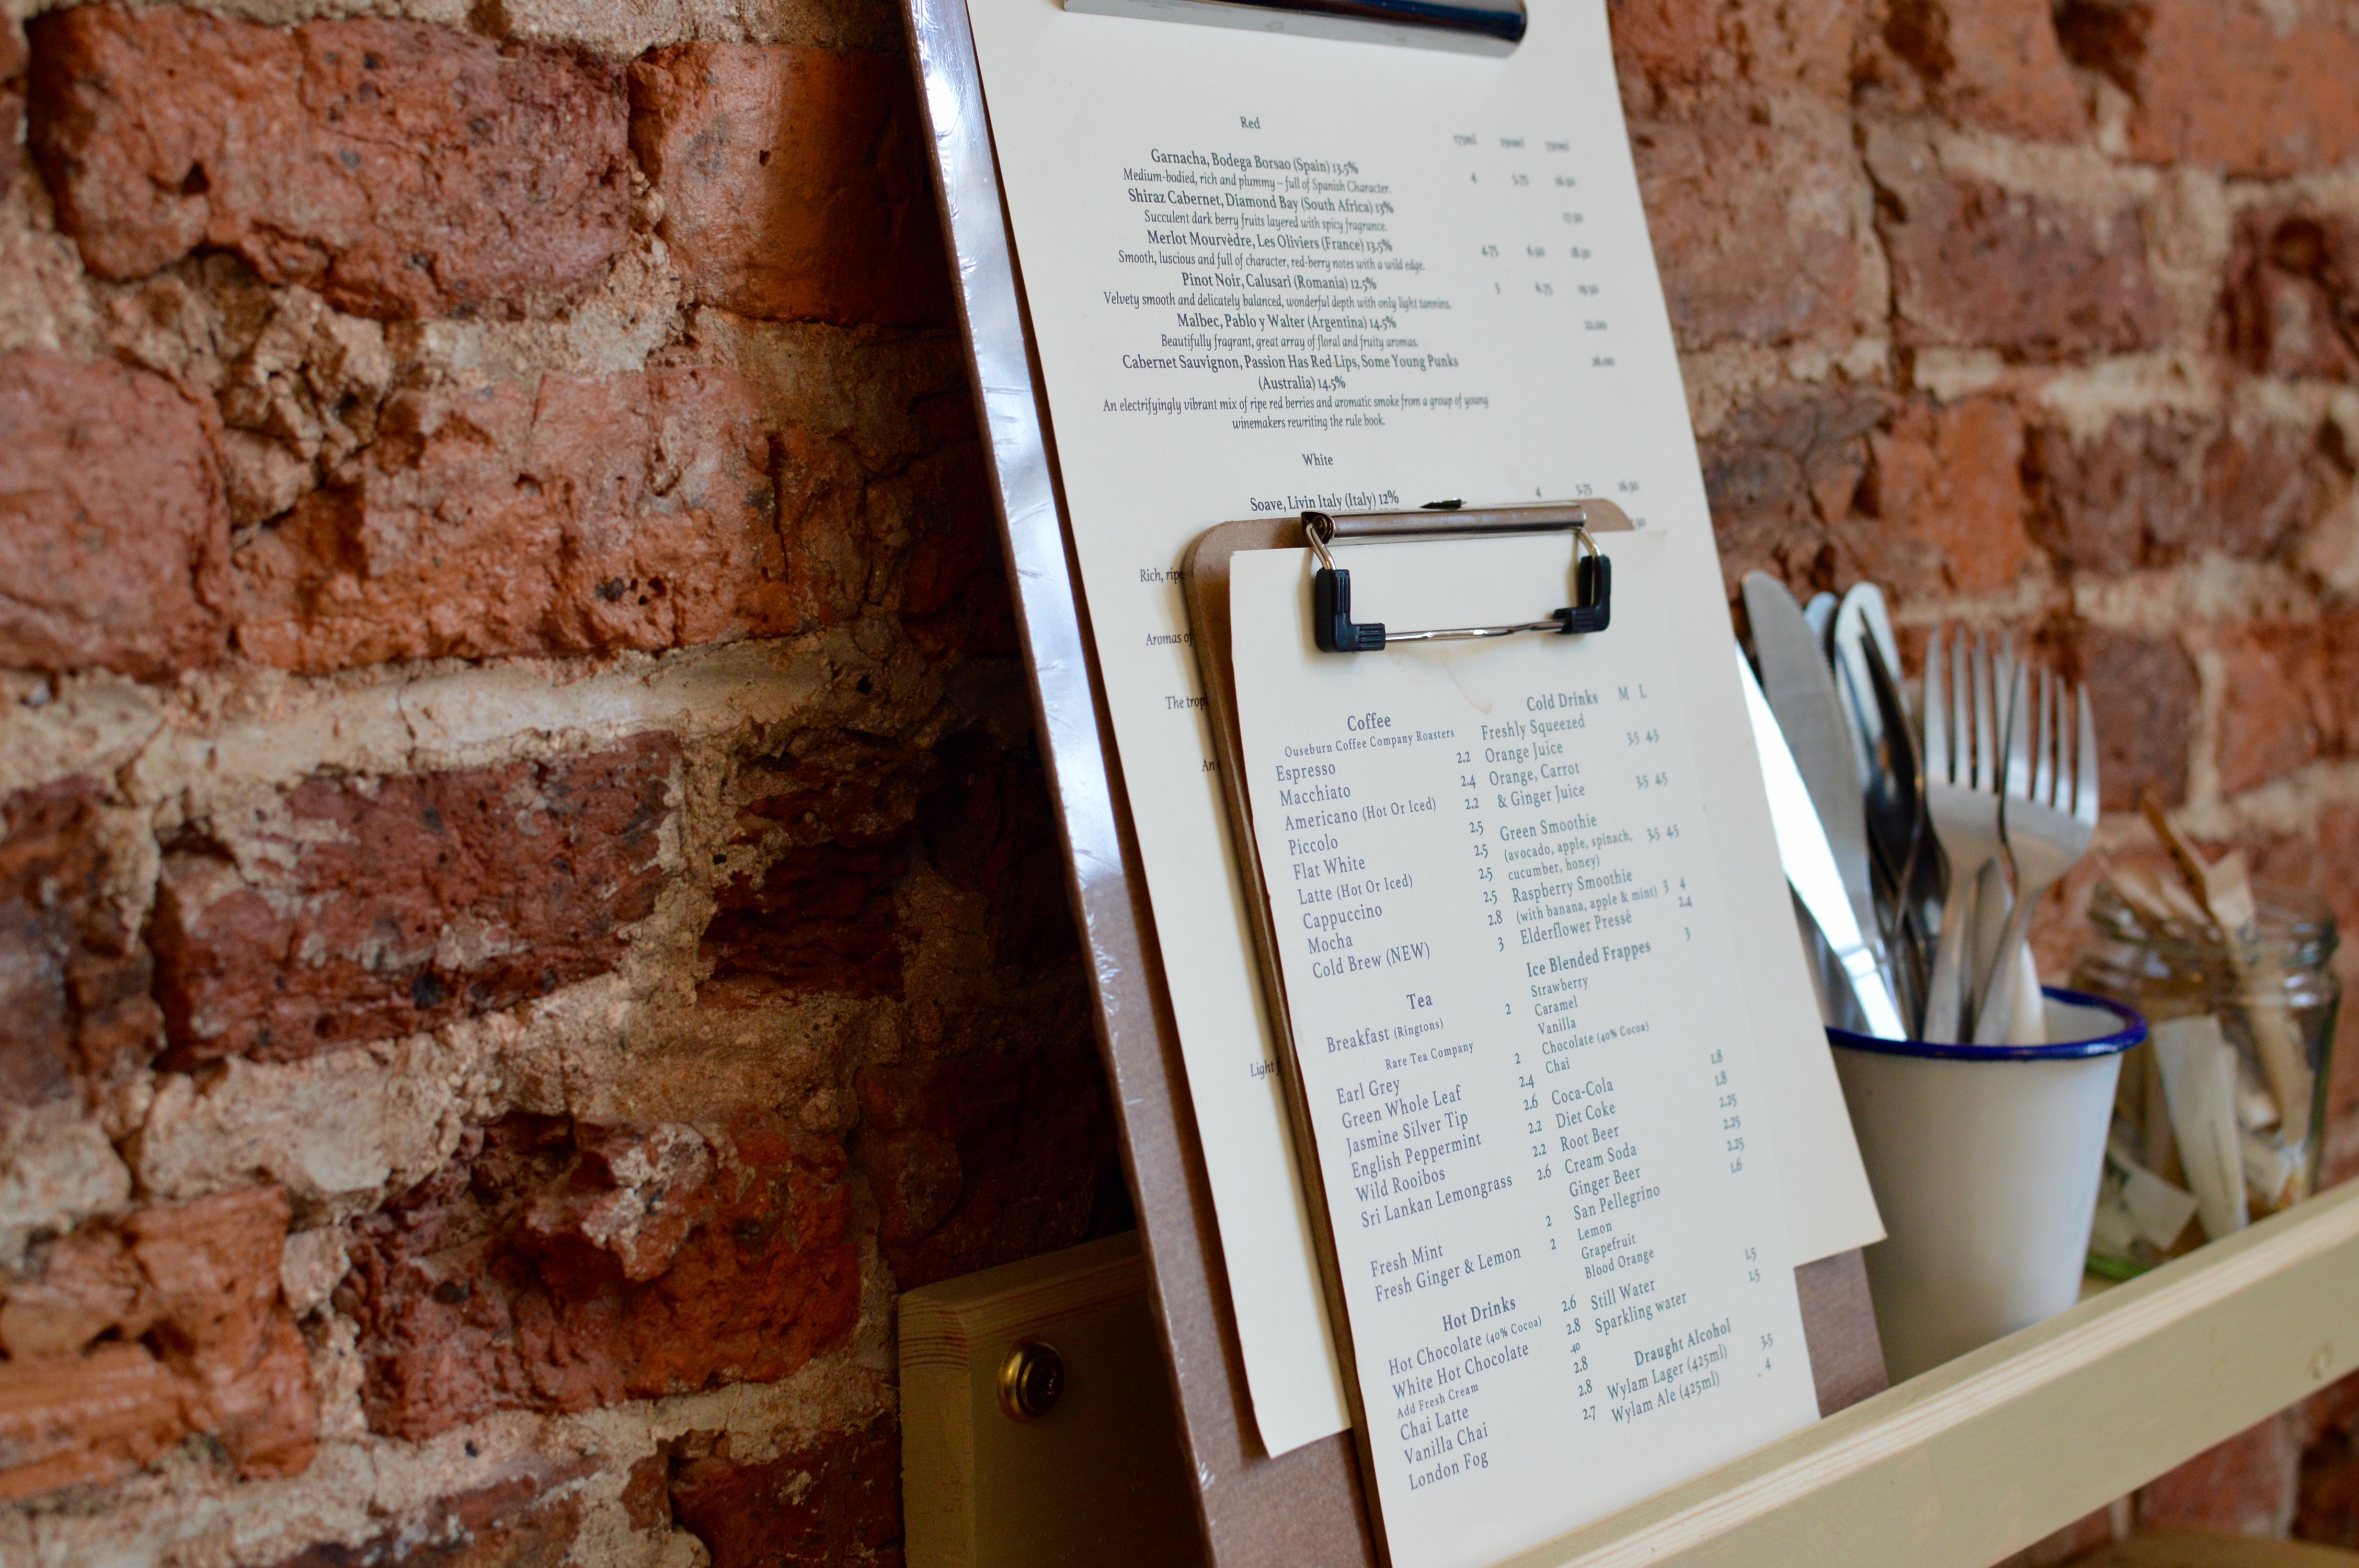 Red
175ml 250ml 750ml
Garnacha, Bodega Borsao (Spain) 13.5%
Medium-bodied, rich and plummy – full of Spanish Character. 4 5.75 16.50
Shiraz Cabernet, Diamond Bay (South Africa) 13%
Succulent dark berry fruits layered with spicy fragrance. 17.50
Merlot Mourvèdre, Les Oliviers (France) 13.5% 4.75 6.50 18.50
Smooth, luscious and full of character, red-berry notes with a wild edge.
Pinot Noir, Calusari (Romania) 12.5% 5 6.75 19.50
Velvety smooth and delicately balanced, wonderful depth with only light tannins.
Malbec, Pablo y Walter (Argentina) 14.5% 22.00
Beautifully fragrant, great array of floral and fruity aromas.
Cabernet Sauvignon, Passion Has Red Lips, Some Young Punks 26.00
(Australia) 14.5%
An electrifyingly vibrant mix of ripe red berries and aromatic smoke from a group of young
winemakers rewriting the rule book.
White
Soave, Livin Italy (Italy) 12% 4 5.75 16.50
Rich, ripe
Aromas of
The trop
An
Light
Coffee
Ouseburn Coffee Company Roasters
Espresso 2.2
Macchiato 2.4
Americano (Hot Or Iced) 2.2
Piccolo 2.5
Flat White 2.5
Latte (Hot Or Iced) 2.5
Cappuccino 2.5
Mocha 2.8
Cold Brew (NEW) 3
Tea
Breakfast (Ringtons) 2
Rare Tea Company
Earl Grey 2
Green Whole Leaf 2.4
Jasmine Silver Tip 2.6
English Peppermint 2.2
Wild Rooibos 2.2
Sri Lankan Lemongrass 2.6
Fresh Mint 2
Fresh Ginger & Lemon 2
Hot Drinks
Hot Chocolate (40% Cocoa) 2.6
White Hot Chocolate 2.8
Add Fresh Cream 40
Chai Latte 2.8
Vanilla Chai 2.8
London Fog 2.7
Cold Drinks M L
Freshly Squeezed
Orange Juice 3.5 4.5
Orange, Carrot
& Ginger Juice 3.5 4.5
Green Smoothie
(avocado, apple, spinach, 3.5 4.5
cucumber, honey)
Raspberry Smoothie
(with banana, apple & mint) 3 4
Elderflower Pressé 2.4
Ice Blended Frappes 3
Strawberry
Caramel
Vanilla
Chocolate (40% Cocoa)
Chai
Coca-Cola 1.8
Diet Coke 1.8
Root Beer 2.25
Cream Soda 2.25
Ginger Beer 2.25
San Pellegrino 1.6
Lemon
Grapefruit
Blood Orange
Still Water 1.5
Sparkling water 1.5
Draught Alcohol
Wylam Lager (425ml) 3.5
Wylam Ale (425ml) 4